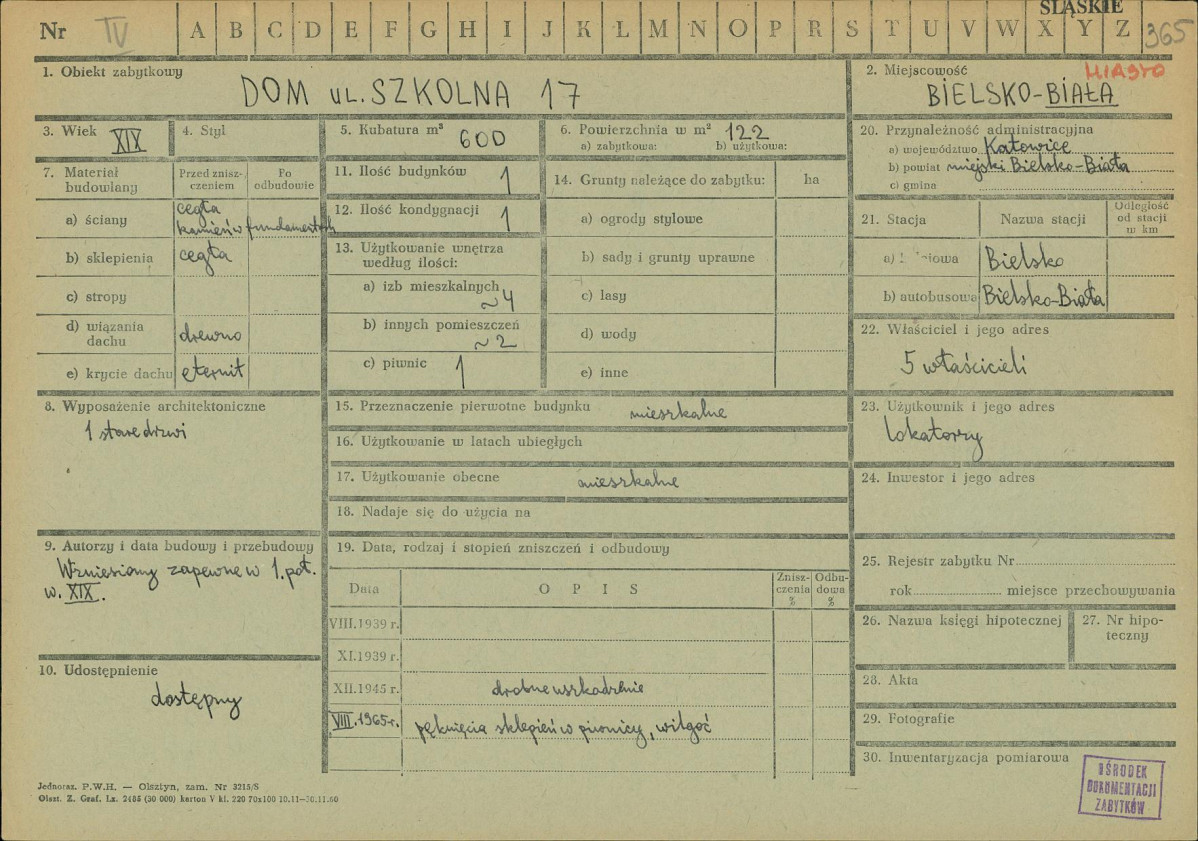 ŚLĄSKIE
Nr IV A B C D E F G H I J K L M N O P R S T U V W X Y Z 365
1. Obiekt zabytkowy
DOM ul. SZKOLNA 17
2. Miejscowość MIASTO
BIELSKO-BIAŁA
3. Wiek XIX
4. Styl
5. Kubatura m³ 600
6. Powierzchnia w m² 122
a) zabytkowa: b) użytkowa:
7. Materiał budowlany
Przed zniszczeniem
Po odbudowie
a) ściany cegła
kamień w fundamentach
b) sklepienia cegła
c) stropy
d) wiązania dachu drewno
e) krycie dachu eternit
8. Wyposażenie architektoniczne
1 stare drzwi
9. Autorzy i data budowy i przebudowy
Wzniesiony zapewne w 1. poł.
w. XIX.
10. Udostępnienie
dostępny
11. Ilość budynków 1
12. Ilość kondygnacji 1
13. Użytkowanie wnętrza
według ilości:
a) izb mieszkalnych
~4
b) innych pomieszczeń
~2
c) piwnic 1
14. Grunty należące do zabytku: ha
a) ogrody stylowe
b) sady i grunty uprawne
c) lasy
d) wody
e) inne
15. Przeznaczenie pierwotne budynku mieszkalne
16. Użytkowanie w latach ubiegłych
17. Użytkowanie obecne mieszkalne
18. Nadaje się do użycia na
19. Data, rodzaj i stopień zniszczeń i odbudowy
Data O P I S Zniszczenia % Odbudowa %
VIII.1939 r.
XI.1939 r.
XII.1945 r. drobne uszkodzenie
VIII.1965 r. pęknięcia sklepień w piwnicy, wilgoć
20. Przynależność administracyjna
a) województwo Katowice
b) powiat miejski Bielsko-Biała
c) gmina
21. Stacja Nazwa stacji Odległość od stacji w km
Bielsko
b) autobusowa Bielsko-Biała
22. Właściciel i jego adres
5 właścicieli
23. Użytkownik i jego adres
lokatorzy
24. Inwestor i jego adres
25. Rejestr zabytku Nr
rok miejsce przechowywania
26. Nazwa księgi hipotecznej
27. Nr hipoteczny
28. Akta
29. Fotografie
30. Inwentaryzacja pomiarowa
OŚRODEK
DOKUMENTACJI
ZABYTKÓW
Jednoraz. P.W.H. — Olsztyn, zam. Nr 3215/S
Olszt. Z. Graf. Lz. 2455 (30 000) karton V kl. 220 70x100 10.11—30.11.60